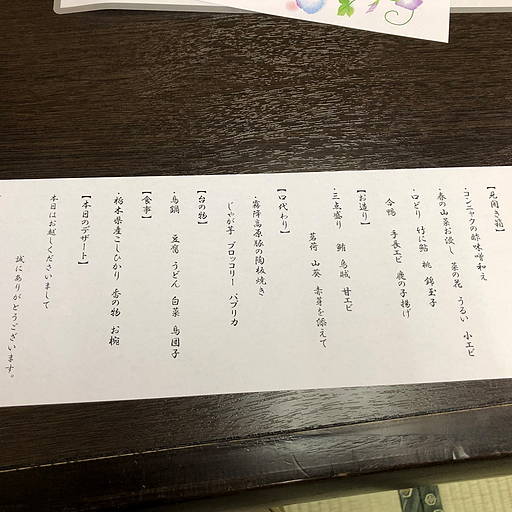 【見開き箱】
・コンニャクの酢味噌和え
・春の山菜お浸し 菜の花 うるい 小エビ
・口どり 竹に鮎 桃 錦玉子
合鴨 手長エビ 鹿の子揚げ
【お造り】
・三点盛り 鮪 烏賊 甘エビ
茗荷 山葵 赤芽を添えて
【口代わり】
・霧降高原豚の陶板焼き
じゃが芋 ブロッコリー パプリカ
【台の物】
・鳥鍋 豆腐 うどん 白菜 鳥団子
【食事】
・栃木県産こしひかり 香の物 お椀
【本日のデザート】
本日はお越しくださいまして
誠にありがとうございます。